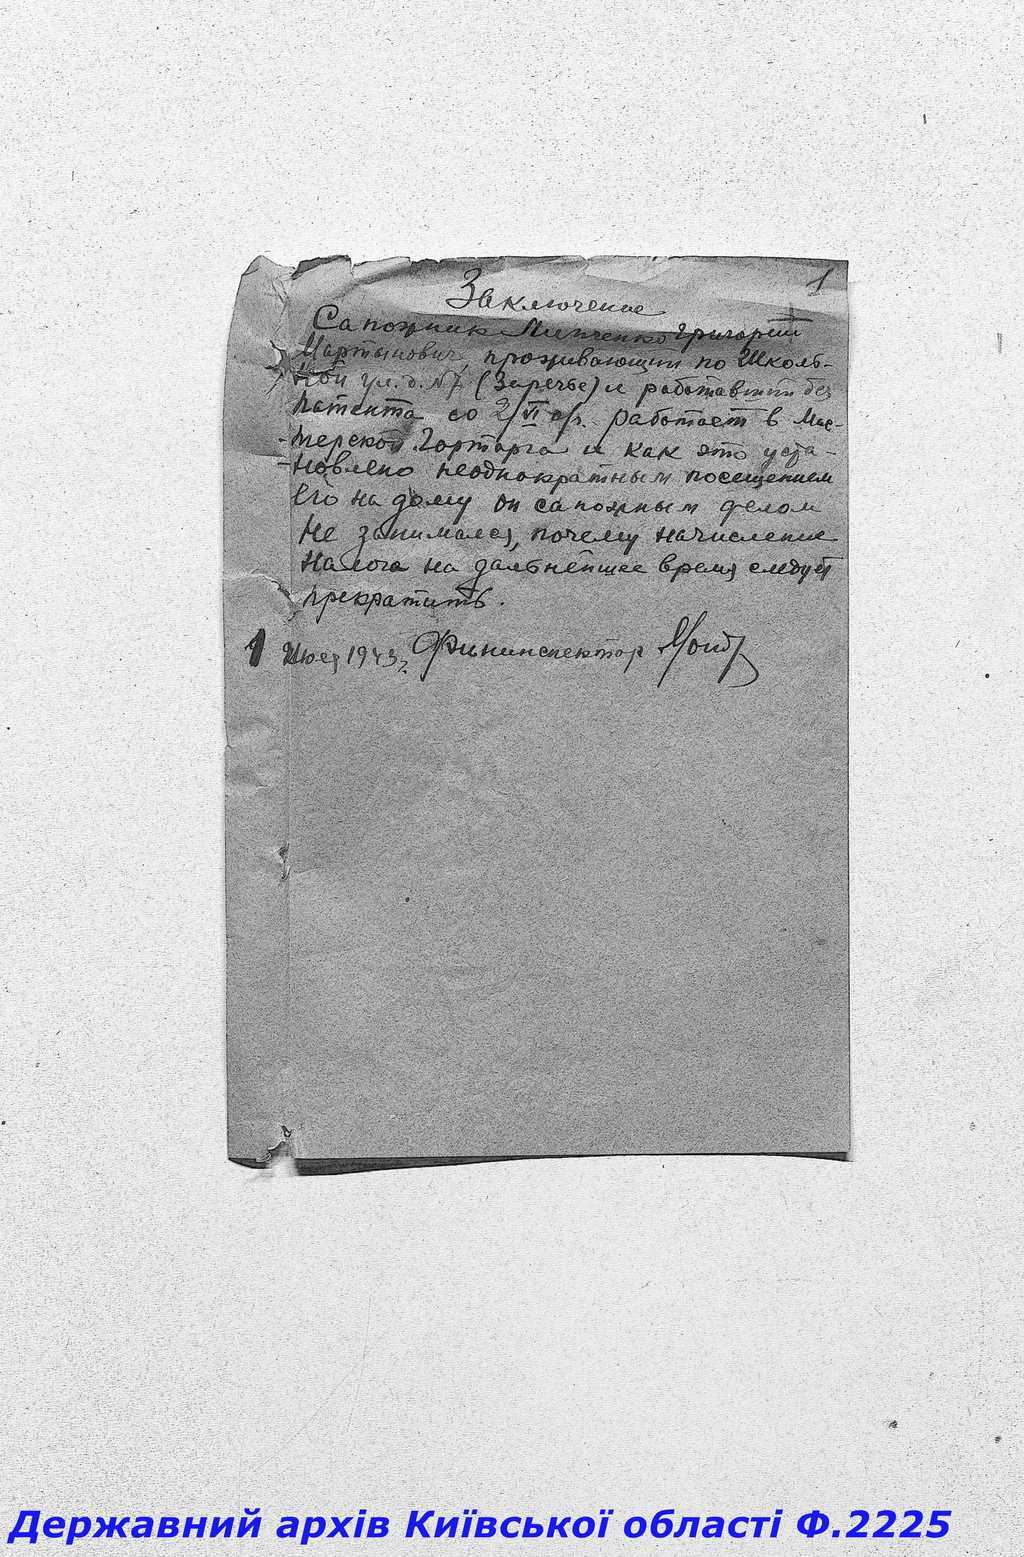 1
Заключение
Сапожник Григорий
Мартынович проживающий по Школь-
ной ул. д. №7 (Заречье) и работавший без
патента со 2/VI с/г. работает в Мас-
-терской Горторга и как это уста-
-новлено неоднократным посещением
его на дому он сапожным делом
не занимался, почему начисление
налога на дальнейшее время следует
прекратить.
1 1943г. Фининспектор
Державний архів Київської області Ф.2225